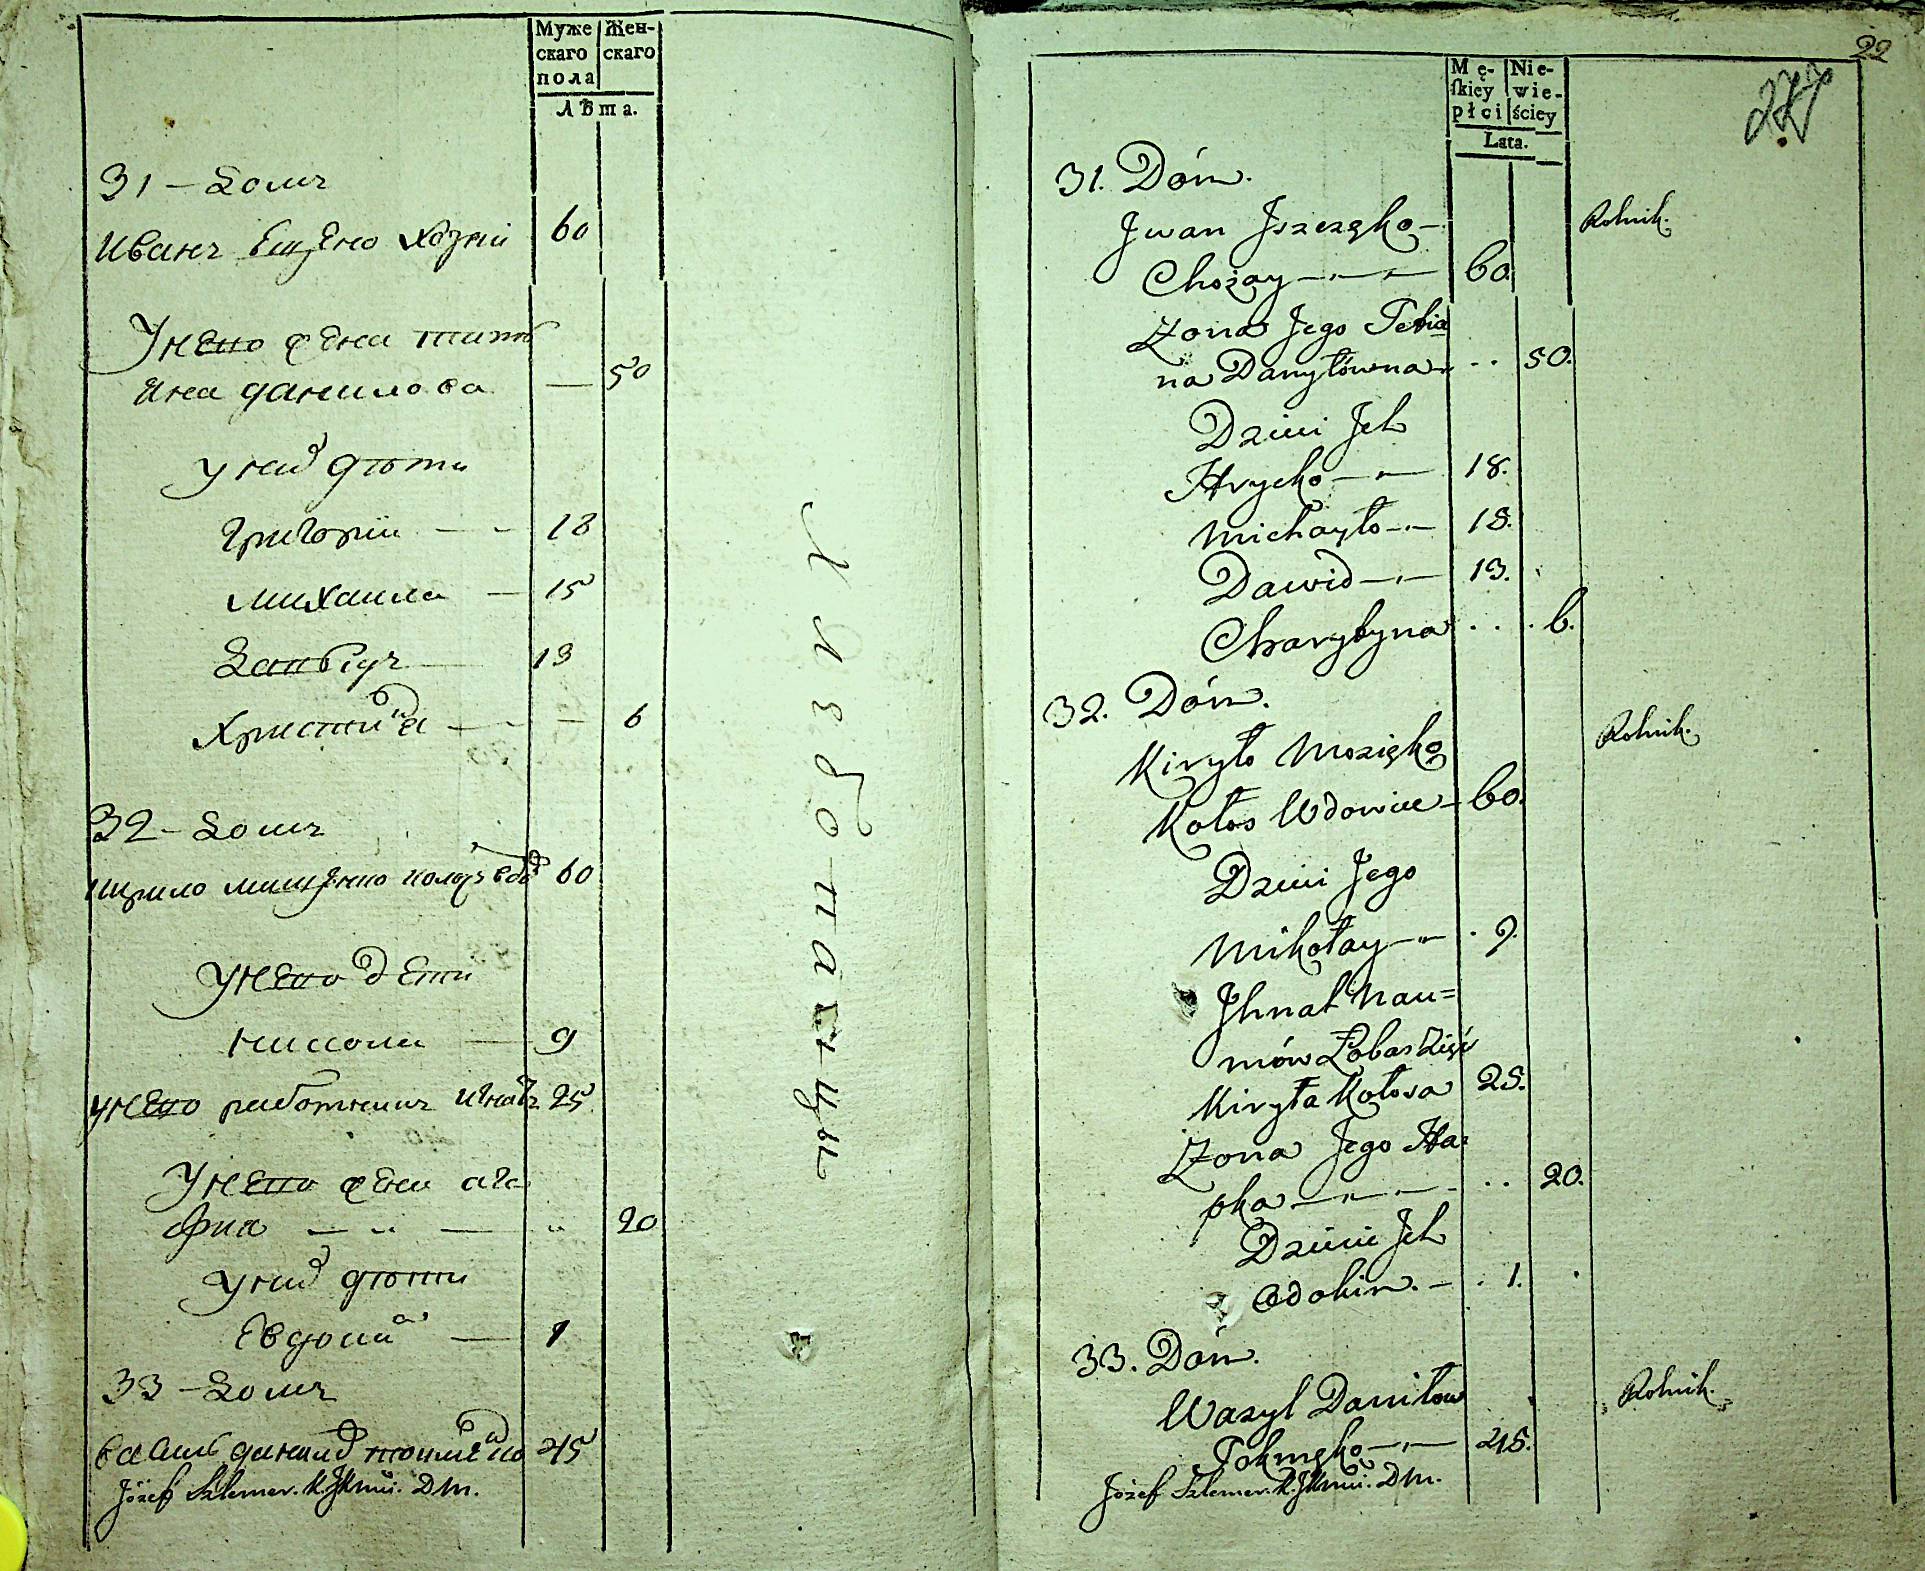 Муже
скаго
пола
Жен-
скаго
Лѣта.
31 – Домъ
Иванъ Ещенко Хозяй 60
У него жена татъ
яна данилова — 50
у них дѣти
Григорій — - 18
Михаила — 15
Давыдъ — 13
Христина — - — 6
32 – Домъ
Кирило мищенко колосъ вдов 60
У него дети
Николай — 9
у него работникъ Игнатъ 25
У него жена ага
фия — „ — „ 20
у них дѣти
Евдоким — 1
33 – Домъ
Василь данилов 45
Józef Szlemer. K. JKMci. DM.
Хлѣбопашцы
22
277
Mę-
ſkiey
płci
Nie-
wie-
ściey
Lata.
31. Dóm.
Jwan Jszczęko – Rolnik.
Chozay — „ — „ — 60.
Zona Jego Tetia
na Danyłówna .. 50.
Dzieci Jch
Hrycko — „ — 18.
Michayło – „ – 15.
Dawid – „ – 13.
Charytyna . . . 6.
32. Dóm.
Kiryło Moszięko Rolnik.
Kołos Wdowiec – 60.
Dzieci Jego
Mikołay – „ – . 9.
Jhnat Nau=
mów Łobas Zięć
Kiryła Kołosa 25.
Zona Jego Ha=
pka — „ — „ — .. 20.
Dziecie Jch
Odokim. – . 1.
33. Dóm.
Wasyl Daniłow Rolnik.
– „ — 45.
Józef Szlemer. K. JKMci. DM.